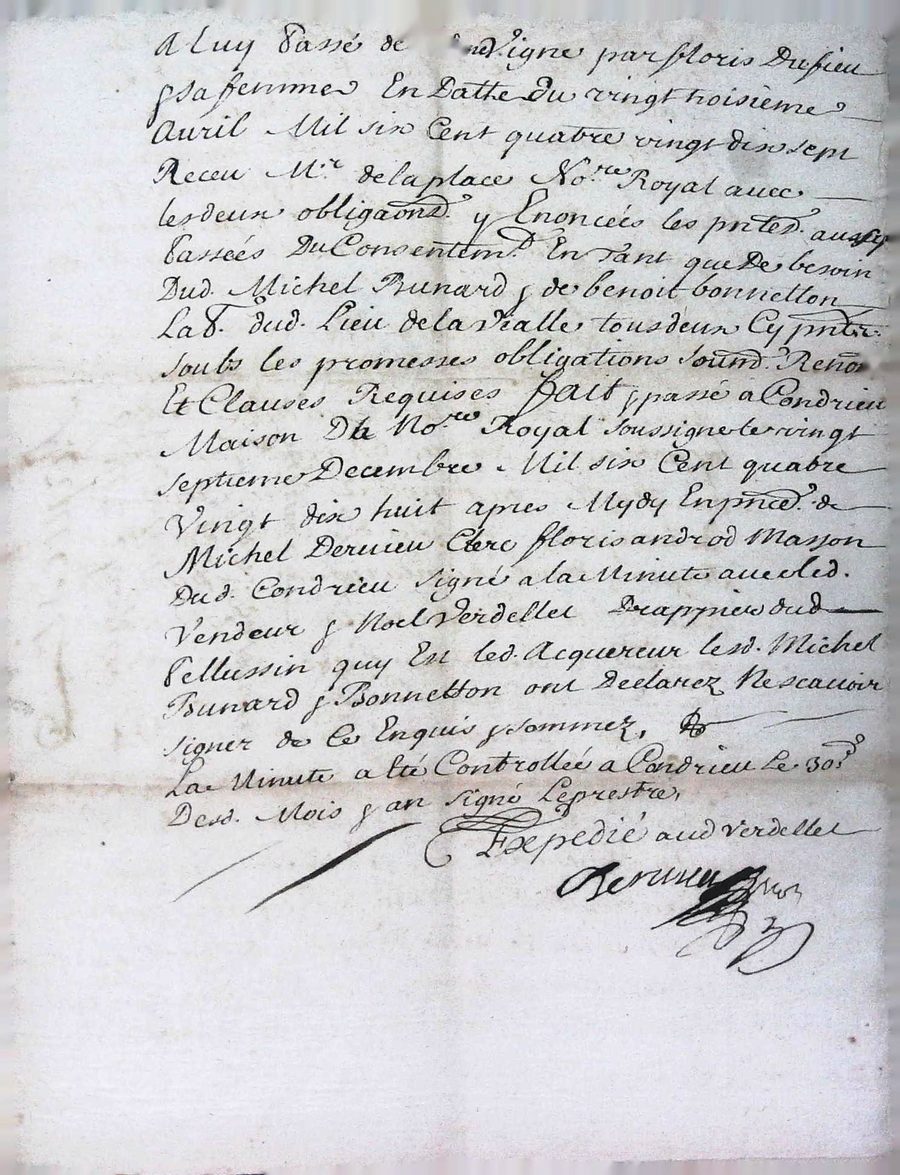 A luy passé de Vigne par floris Dufieu
& sa femme En Datte du vingt troisieme
Avril Mil six Cent quatre vingt dix sept
Receu Mr. delaplace No.re Royal avec
lesdeux obligaons. y Enoncées les pntes. aussy
passées Du Consentemt. En Tant que De besoin
Dud. Michel Bunard & de benoit bonnetton
Lab. dud. Lieu delavialle tousdeux Cy pnts.
soubs les promesses obligations soumd. Renon
Et Clauses Requises fait & passé a Condrieu
Maison De No.re Royal soussigné le vingt
septieme Decembre Mil six Cent quatre
Vingt dix huit apres Mydy En pnce. de
Michel Dervieu Clerc floris androd Masson
Dud. Condrieu signé a la Minute avec led.
Vendeur & Noel Verdellet Drappier dud
Pellussin quy Est led. Acquereur lesd. Michel
Bunard & Bonnetton ont Declarez Nescavoir
signer de Ce Enquis & sommez,
La Minute a Eté Controllée a Condrieu Le 30e.
Desd. Mois & an signé Leprestre,
Expedié aud Verdellet
Dervieu